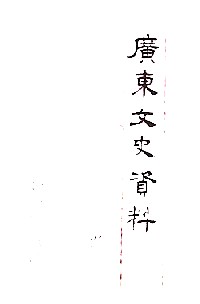 廣東文史資料